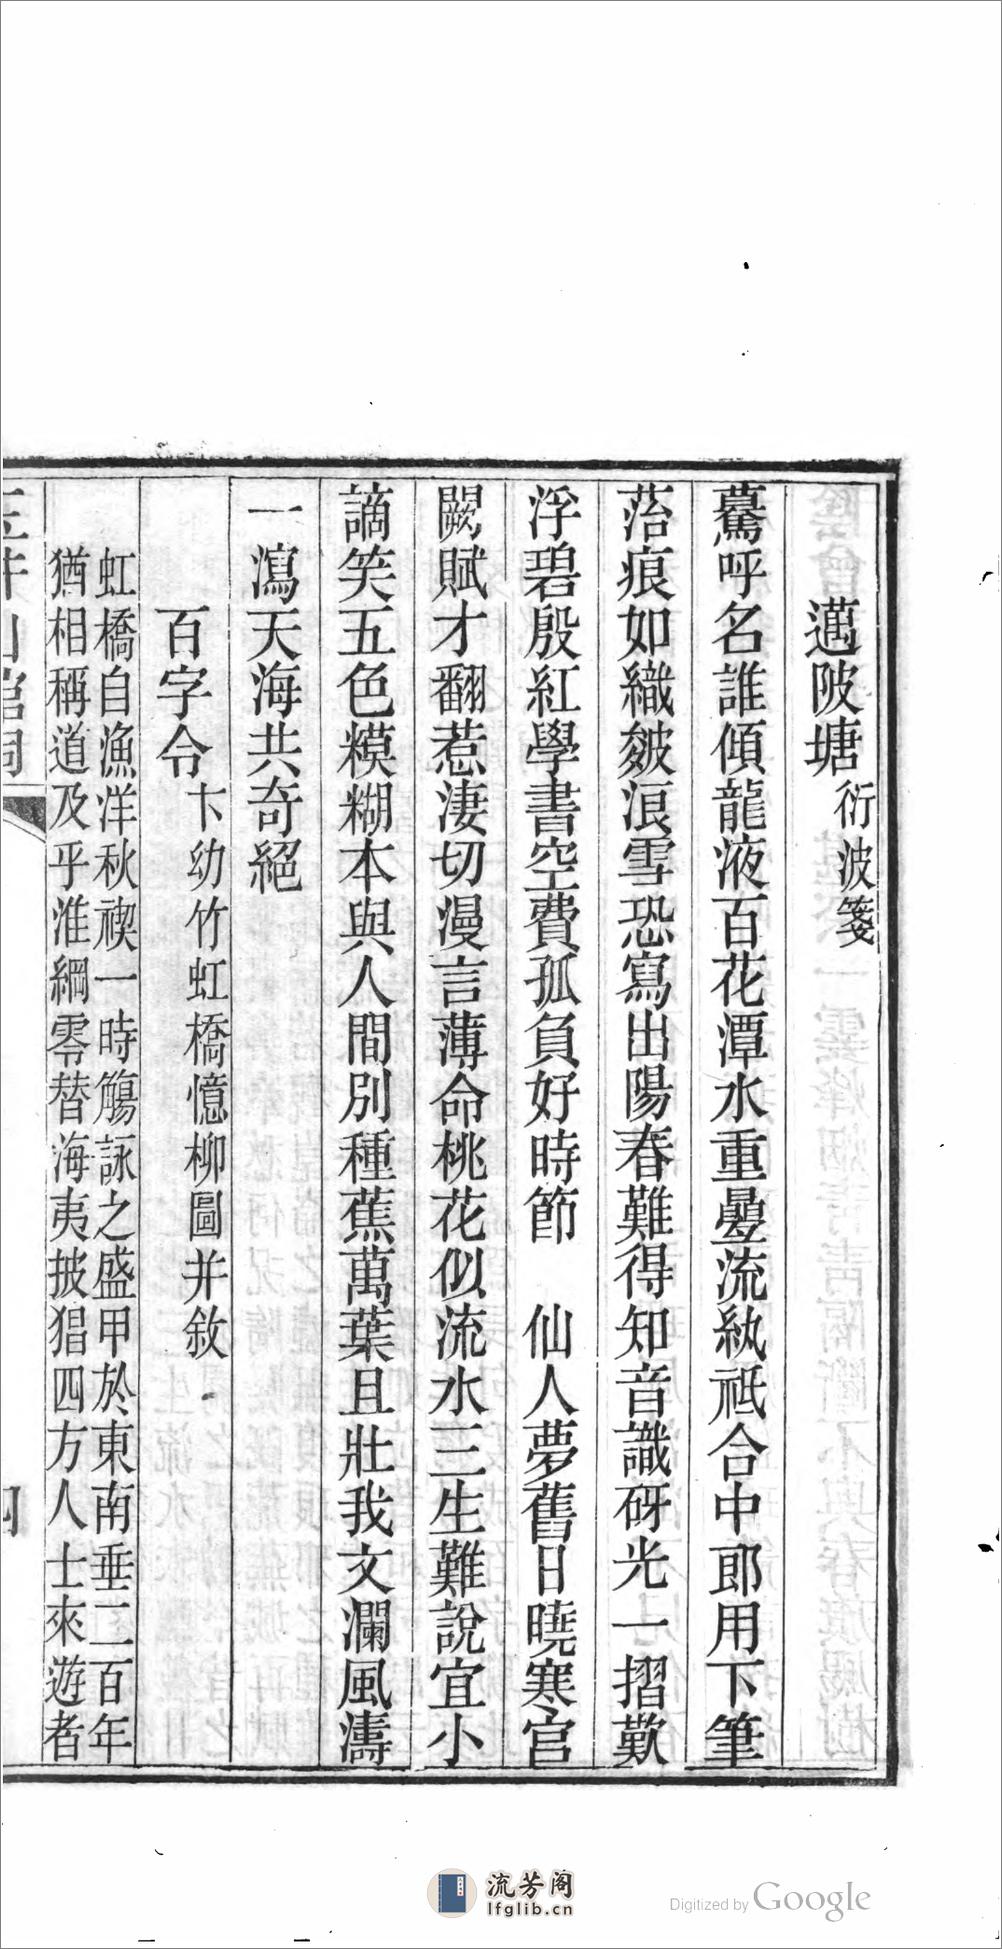 邁陂塘衍波箋
驀呼名誰傾龍液百花潭水重疊流紈祗合中郎用下筆
菭痕如織皴浪雪恐寫出陽春難得知音識砑光一摺歎
浮碧殷紅學書空費孤負好時節　仙人夢舊日曉寒宮
闕賦才翻惹淒切漫言薄命桃花似流水三生難說宜小
謫笑五色糢糊本與人間別種蕉萬葉且壯我文瀾風濤
一瀉天海共奇絕
百字令卞幼竹虹橋憶柳圖并敘
虹橋自漁洋秋禊一時觴詠之盛甲於東南垂二百年
猶相稱道及乎淮綱零替海夷披猖四方人士來遊者
流芳阁
lfglib.cn
Digitized by Google